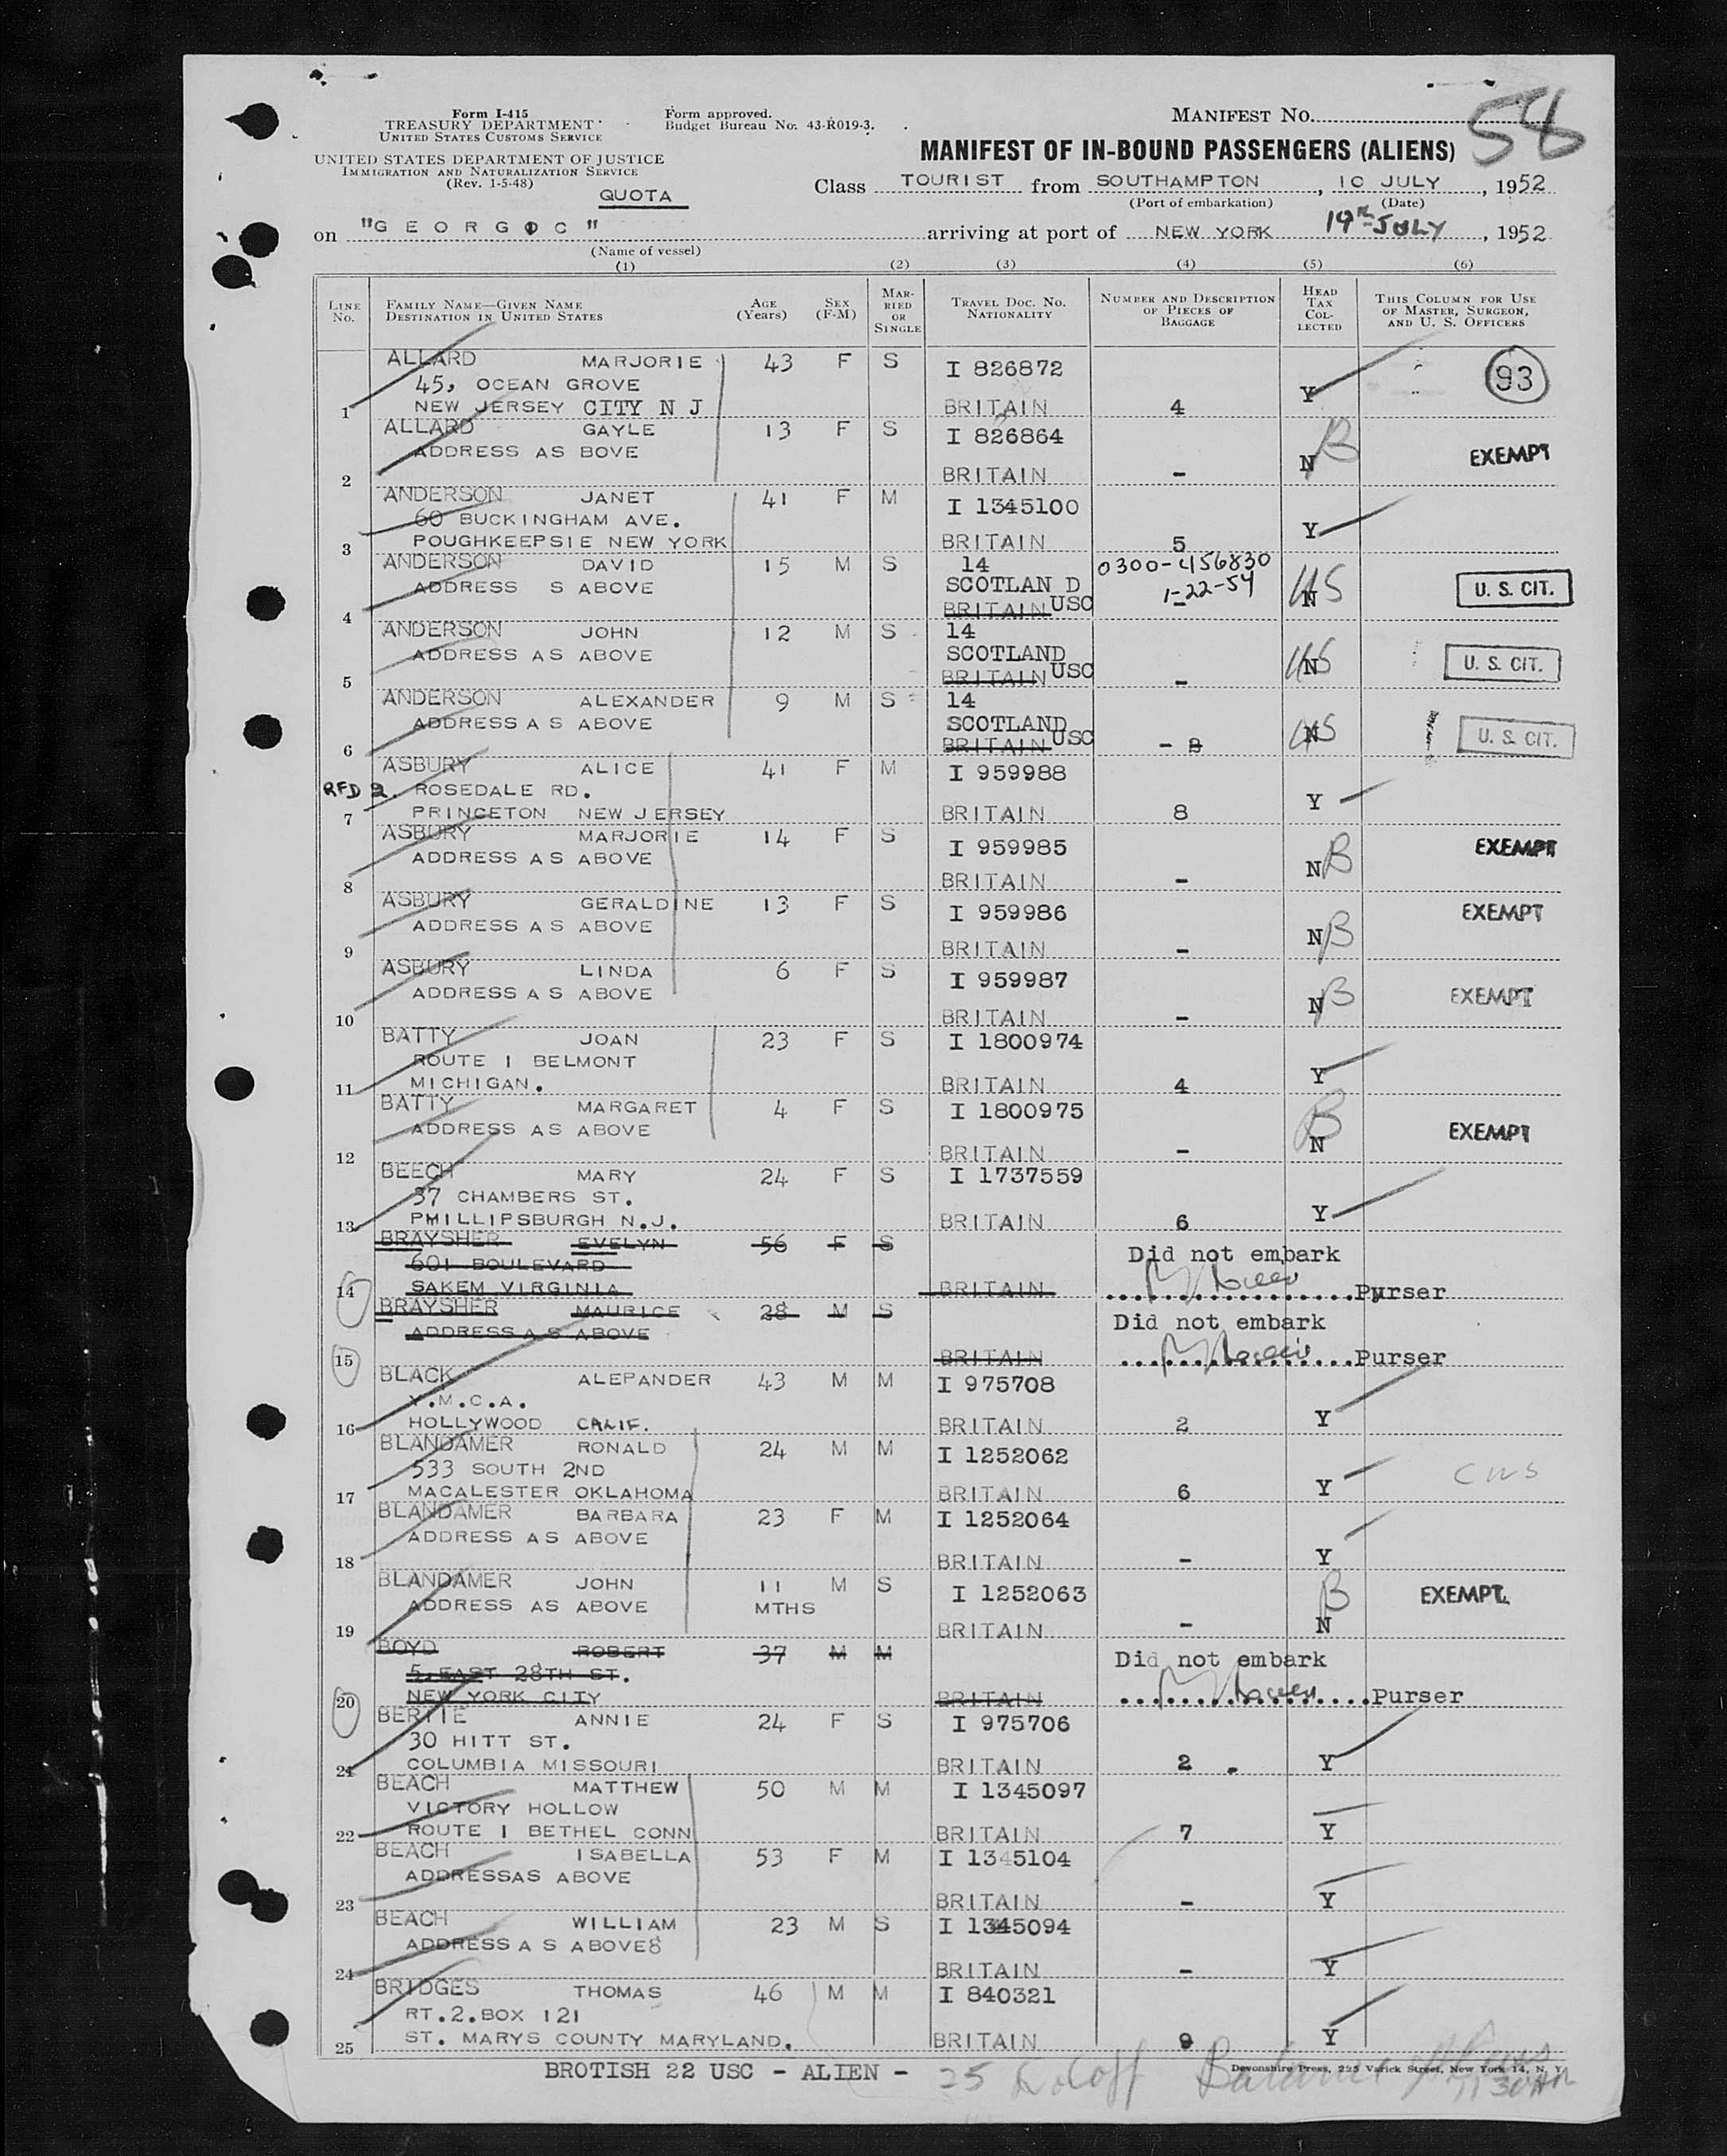 Form I-415
TREASURY DEPARTMENT
UNITED STATES CUSTOMS SERVICE
UNITED STATES DEPARTMENT OF JUSTICE
IMMIGRATION AND NATURALIZATION SERVICE
(Rev. 1-5-48)
QUOTA
Form approved.
Budget Bureau No. 43-R019-3.
MANIFEST No.
58
MANIFEST OF IN-BOUND PASSENGERS (ALIENS)
Class TOURIST from SOUTHAMPTON, 10 JULY, 1952
(Port of embarkation) (Date)
on "GEORGIC" arriving at port of NEW YORK 19th JULY, 1952
(Name of vessel)
(1) (2) (3) (4) (5) (6)
LINE No. FAMILY NAME—GIVEN NAME DESTINATION IN UNITED STATES AGE (Years) SEX (F-M) MARRIED OR SINGLE TRAVEL DOC. NO. NATIONALITY NUMBER AND DESCRIPTION OF PIECES OF BAGGAGE HEAD TAX COLLECTED THIS COLUMN FOR USE OF MASTER, SURGEON, AND U. S. OFFICERS
ALLARD MARJORIE 43 F S I 826872 93
45, OCEAN GROVE
1 NEW JERSEY CITY N J BRITAIN 4 Y
ALLARD GAYLE 13 F S I 826864
ADDRESS AS BOVE B EXEMPT
2 BRITAIN - N
ANDERSON JANET 41 F M I 1345100
60 BUCKINGHAM AVE. Y
3 POUGHKEEPSIE NEW YORK BRITAIN 5
ANDERSON DAVID 15 M S 14 0300-456830
ADDRESS S ABOVE SCOTLAN D 1-22-54 US U. S. CIT.
4 BRITAIN USC - N
ANDERSON JOHN 12 M S 14
ADDRESS AS ABOVE SCOTLAND US U. S. CIT.
5 BRITAIN USC - N
ANDERSON ALEXANDER 9 M S 14
ADDRESS A S ABOVE SCOTLAND US U. S. CIT.
6 BRITAIN USC - 8 N
ASBURY ALICE 41 F M I 959988
RFD 2. ROSEDALE RD. Y
7 PRINCETON NEW JERSEY BRITAIN 8
ASBURY MARJORIE 14 F S I 959985 EXEMPT
ADDRESS A S ABOVE N B
8 BRITAIN -
ASBURY GERALDINE 13 F S I 959986 EXEMPT
ADDRESS A S ABOVE N B
9 BRITAIN -
ASBURY LINDA 6 F S I 959987
ADDRESS A S ABOVE N B EXEMPT
10 BRITAIN -
BATTY JOAN 23 F S I 1800974
ROUTE 1 BELMONT
11 MICHIGAN. BRITAIN 4 Y
BATTY MARGARET 4 F S I 1800975
ADDRESS AS ABOVE B EXEMPT
12 BRITAIN - N
BEECH MARY 24 F S I 1737559
37 CHAMBERS ST.
13 PMILLIPSBURGH N.J. BRITAIN 6 Y
BRAYSHER EVELYN 56 F S Did not embark
601 BOULEVARD
14 SAKEM VIRGINIA BRITAIN Purser
BRAYSHER MAURICE 28 M S Did not embark
ADDRESS A S ABOVE
15 BRITAIN Purser
BLACK ALEPANDER 43 M M I 975708
Y.M.C.A.
16 HOLLYWOOD CALIF. BRITAIN 2 Y
BLANDAMER RONALD 24 M M I 1252062
533 SOUTH 2ND CWS
17 MACALESTER OKLAHOMA BRITAIN 6 Y
BLANDAMER BARBARA 23 F M I 1252064
ADDRESS AS ABOVE
18 BRITAIN - Y
BLANDAMER JOHN 11 M S I 1252063
ADDRESS AS ABOVE MTHS B EXEMPT.
19 BRITAIN - N
BOYD ROBERT 37 M M Did not embark
5, EAST 28TH ST.
20 NEW YORK CITY BRITAIN Purser
BERTIE ANNIE 24 F S I 975706
30 HITT ST.
21 COLUMBIA MISSOURI BRITAIN 2 . Y
BEACH MATTHEW 50 M M I 1345097
VICTORY HOLLOW
22 ROUTE 1 BETHEL CONN BRITAIN 7 Y
BEACH ISABELLA 53 F M I 1345104
ADDRESSAS ABOVE
23 BRITAIN - Y
BEACH WILLIAM 23 M S I 1345094
ADDRESS A S ABOVE8
24 BRITAIN - Y
BRIDGES THOMAS 46 M M I 840321
RT.2.BOX 121
25 ST. MARYS COUNTY MARYLAND. BRITAIN 9 Y
BROTISH 22 USC - ALIEN - 25
Devonshire Press, 225 Varick Street, New York 14, N. Y.